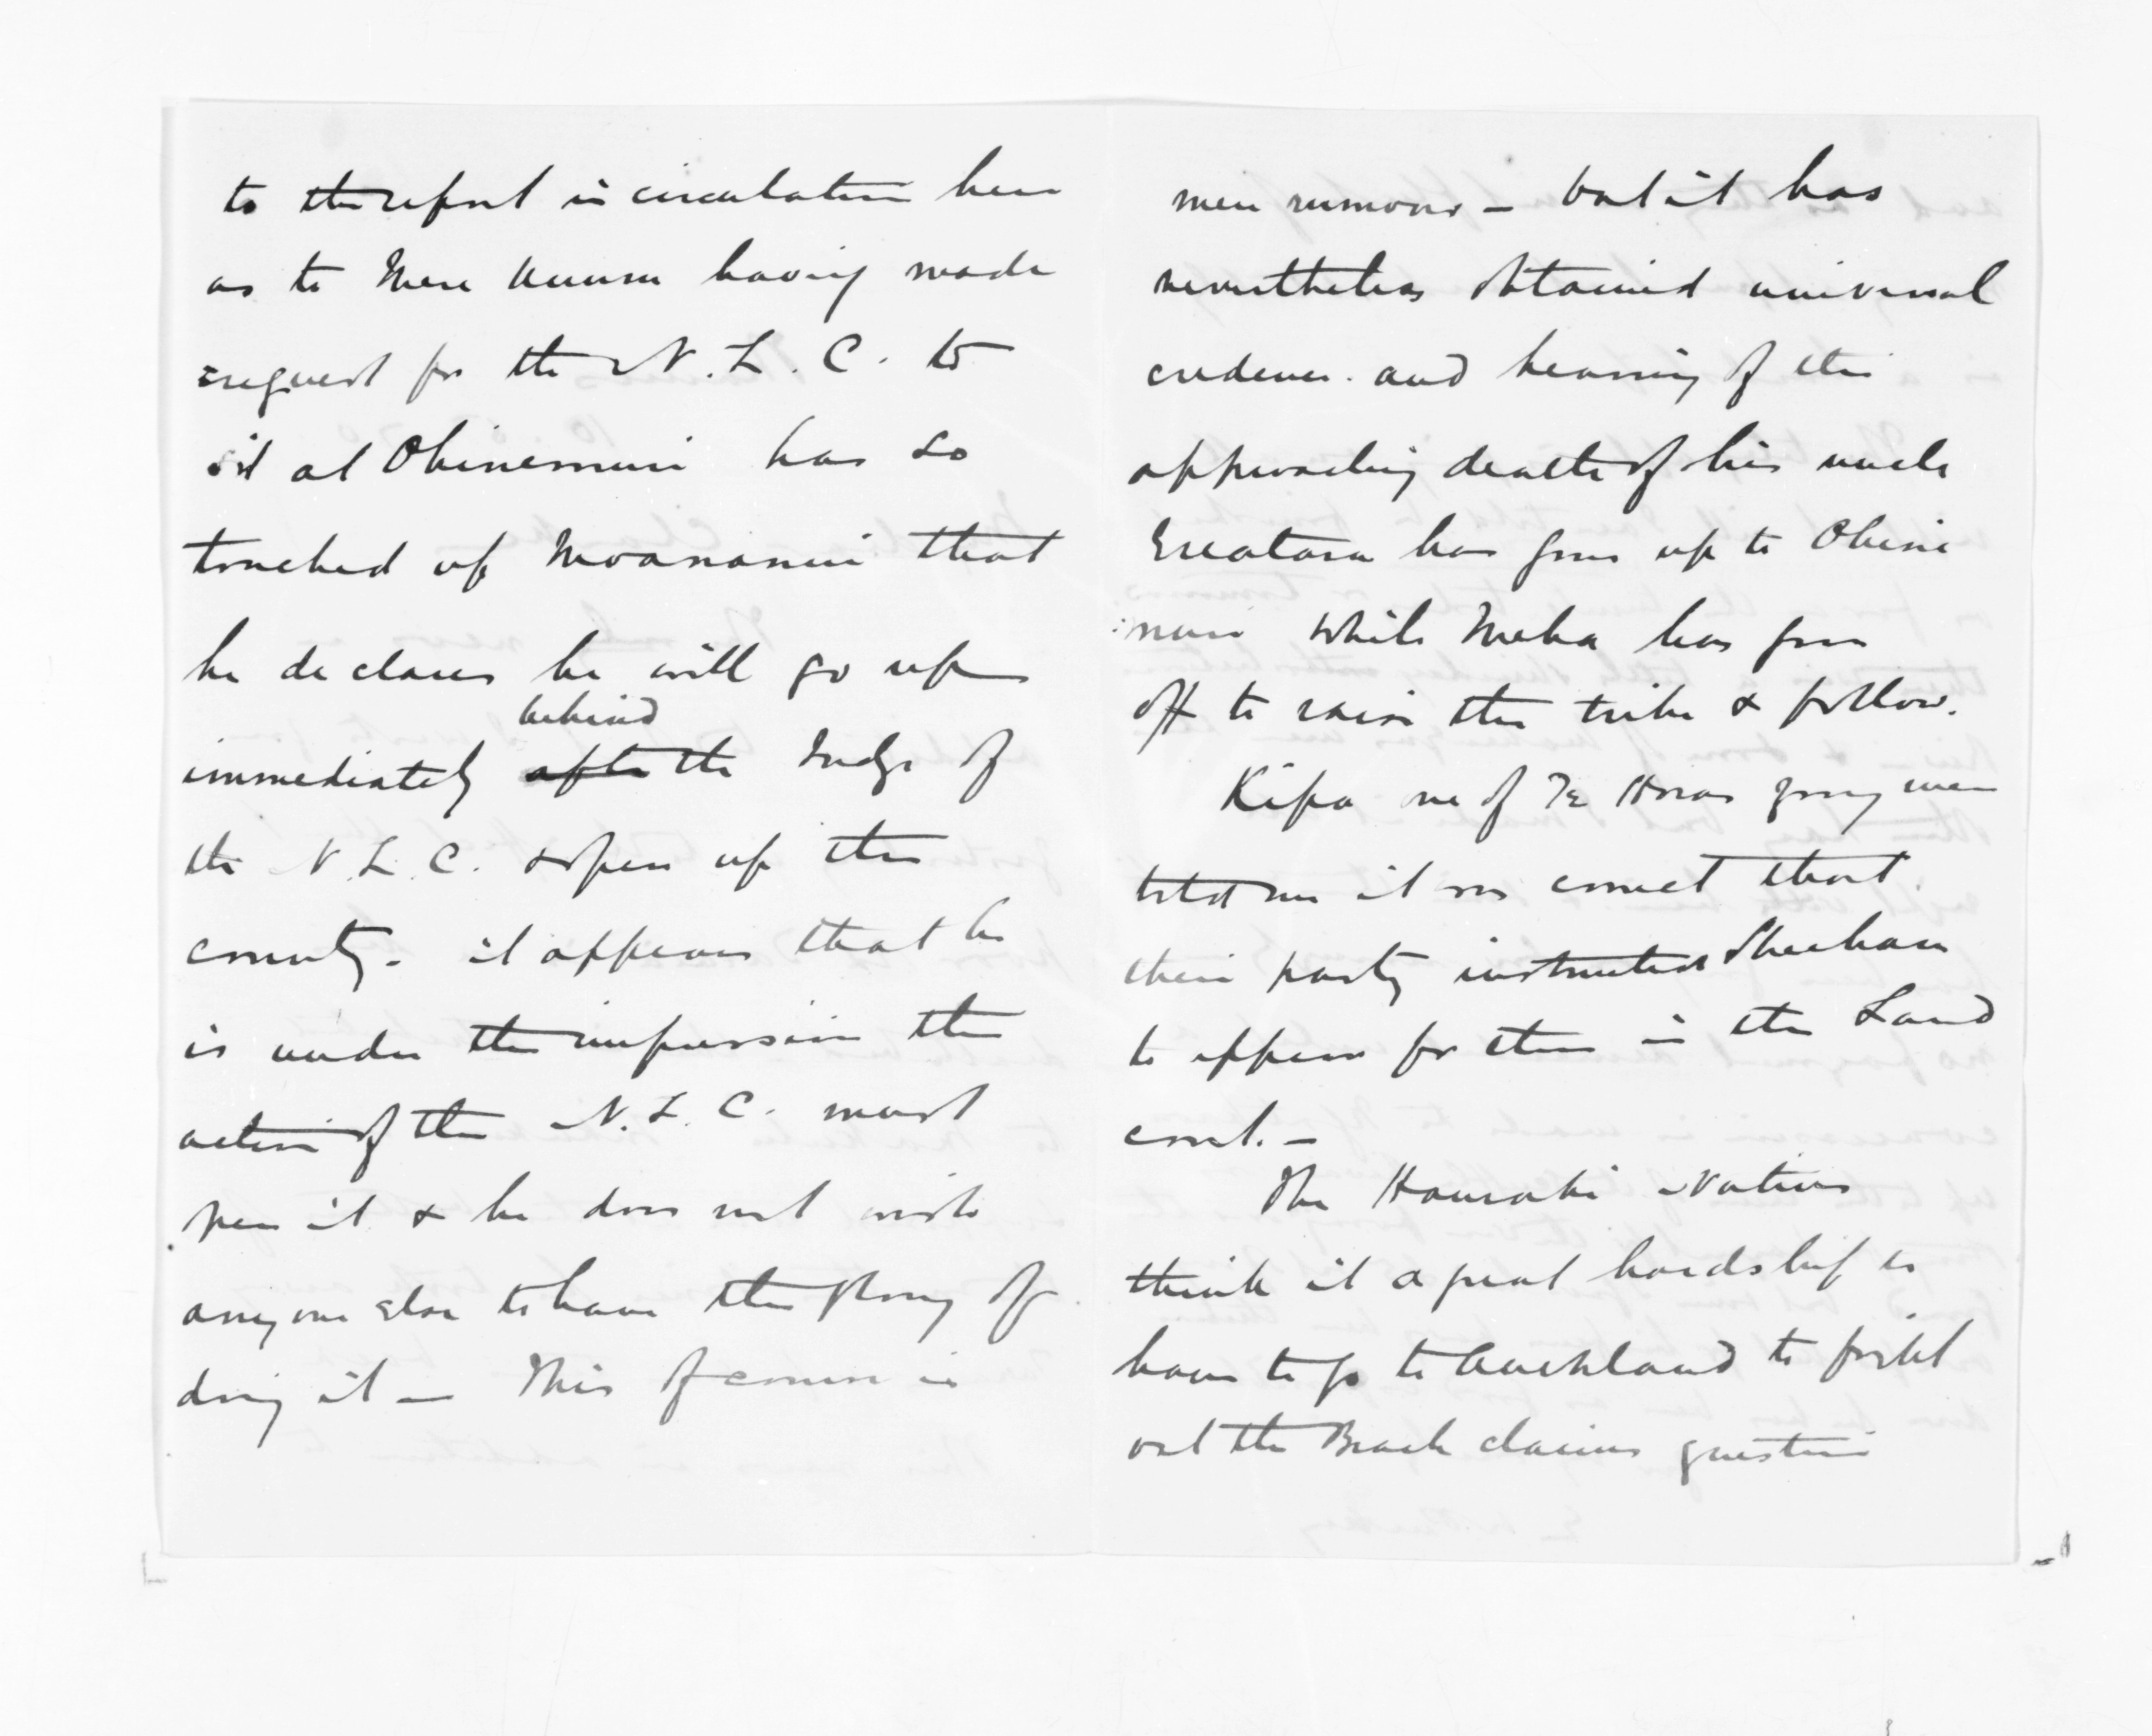 to the report in circulation here
as to Mere Kuuru having made
request for the N. L. C. to
sit at Ohinemuri has so
touched up Moananui that
he declares he will go up
behind
immediately after the Judge of
the N. L. C. & open up the
country. it appears that he
is under the impression the
action of the N. L. C. must
open it & he does not wish
any one else to have the glory of
doing it – This of course is
mere rumour – but it has
nevertheless obtained universal
credence. and hearing of the
approaching death of his uncle
Erictara has gone up to Ohine
muri while Meha has gone
off to raise the tribe & follow.
Kipa one of Te Horas young men
told me it was correct that
their party instructed Sheehan
to appear for them in the Land
court. –
The Hauraki Natives
think it a great hardship to
have to go to Auckland to fight
out the Beach claims question